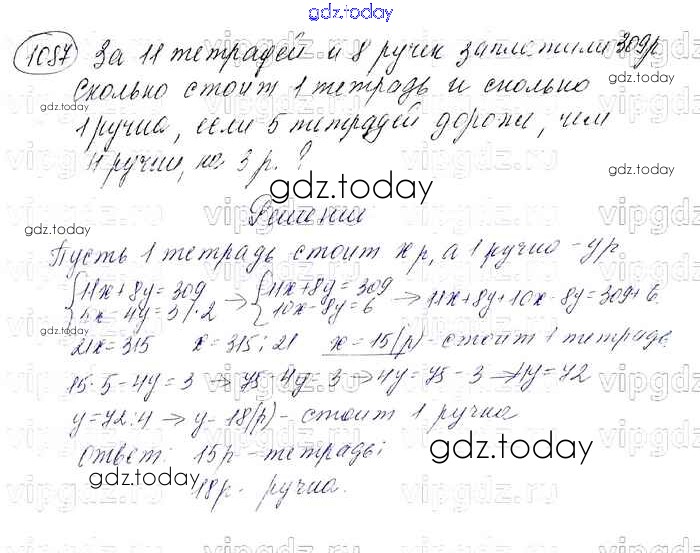 gdz.today
1087 За 11 тетрадей и 8 ручек заплатили 309р
Сколько стоит 1 тетрадь и сколько
1 ручка, если 5 тетрадей дороже, чем
4 ручки, на 3 р.?
gdz.today
Решение
Пусть 1 тетрадь стоит x р, а 1 ручка - y р
{11x+8y=309 → {11x+8y=309 → 11x+8y+10x-8y=309+6
5x-4y=3 /·2 10x-8y=6
21x=315 x=315:21 x=15(р)- стоит 1 тетрадь
15·5-4y=3 → 75-4y=3 → 4y=75-3 → 4y=72
y=72:4 → y=18(р)- стоит 1 ручка
ответ: 15р - тетрадь;
18р. ручка.
gdz.today
gdz.today
gdz.today
gdz.today
gdz.today
vipgdz.ru